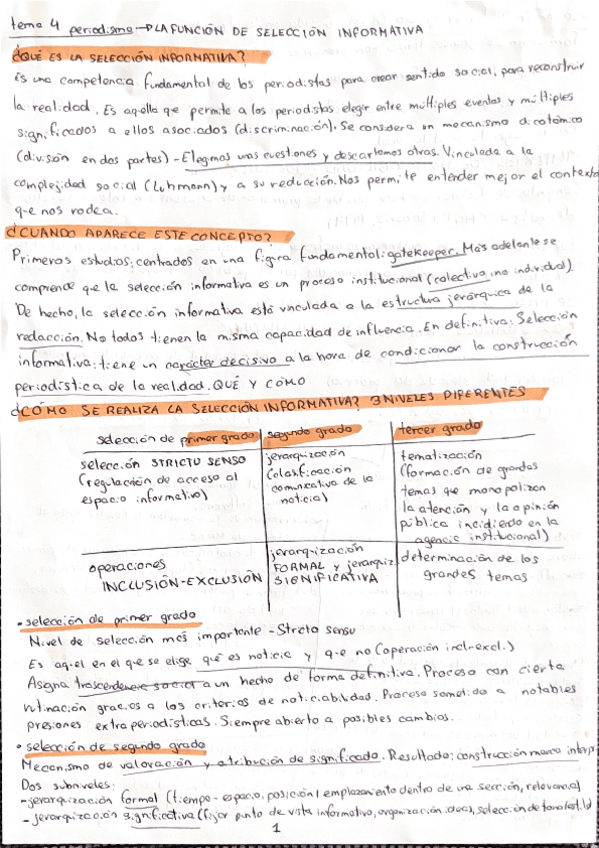 tema 4 periodismo → LA FUNCIÓN DE SELECCIÓN INFORMATIVA
¿QUÉ ES LA SELECCIÓN INFORMATIVA?
Es una competencia fundamental de los periodistas para crear sentido social, para reconstruir
la realidad. Es aquella que permite a los periodistas elegir entre múltiples eventos y múltiples
significados a ellos asociados (discriminación). Se considera un mecanismo dicotómico
(división en dos partes) - Elegimos unas cuestiones y descartamos otras. Vinculada a la
complejidad social (Luhmann) y a su reducción. Nos permite entender mejor el contexto
que nos rodea.
¿CUANDO APARECE ESTE CONCEPTO?
Primeros estudios; centrados en una figura fundamental: gatekeeper. Más adelante se
comprende que la selección informativa es un proceso institucional (colectivo, no individual)
De hecho, la selección informativa está vinculada a la estructura jerárquica de la
redacción. No todos tienen la misma capacidad de influencia. En definitiva: Selección
informativa: tiene un carácter decisivo a la hora de condicionar la construcción
periodística de la realidad. QUÉ Y CÓMO
¿CÓMO SE REALIZA LA SELECCIÓN INFORMATIVA? 3 NIVELES DIFERENTES
selección de primer grado segundo grado tercer grado
selección STRICTU SENSO jerarquización tematización
(regulación de acceso al (clasificación (formación de grandes
espacio informativo) comunicativa de la temas que monopolizan
noticia) la atención y la opinión
pública incidiendo en la
agencia institucional)
operaciones jerarquización determinación de los
INCLUSIÓN-EXCLUSIÓN FORMAL y jerarquiz. grandes temas
SIGNIFICATIVA
• selección de primer grado
Nivel de selección más importante - Stricto sensu
Es aquel en el que se elige qué es noticia y que no (operación incl-excl.)
Asigna trascendencia social a un hecho de forma definitiva. Proceso con cierta
gracias a los criterios de noticiabilidad. Proceso sometido a notables
presiones extraperiodísticas. Siempre abierto a posibles cambios.
• selección de segundo grado
Mecanismo de valoración y atribución de significado. Resultado: construcción marco interp
Dos subniveles:
- jerarquización formal (tiempo-espacio, posición / emplazamiento dentro de una sección, relevancia)
- jerarquización significativa (fijar punto de vista informativo, organización ideas, selección de
1